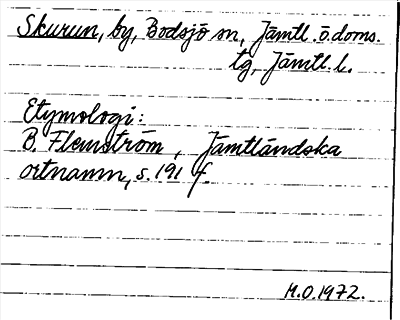 Skurun, by, Bodsjö sn, Jämtl. ö. doms.
tg, Jämtl. l.
Etymologi:
B. Flemström, Jämtländska
ortnamn, s. 191 f.
M.O. 1972.